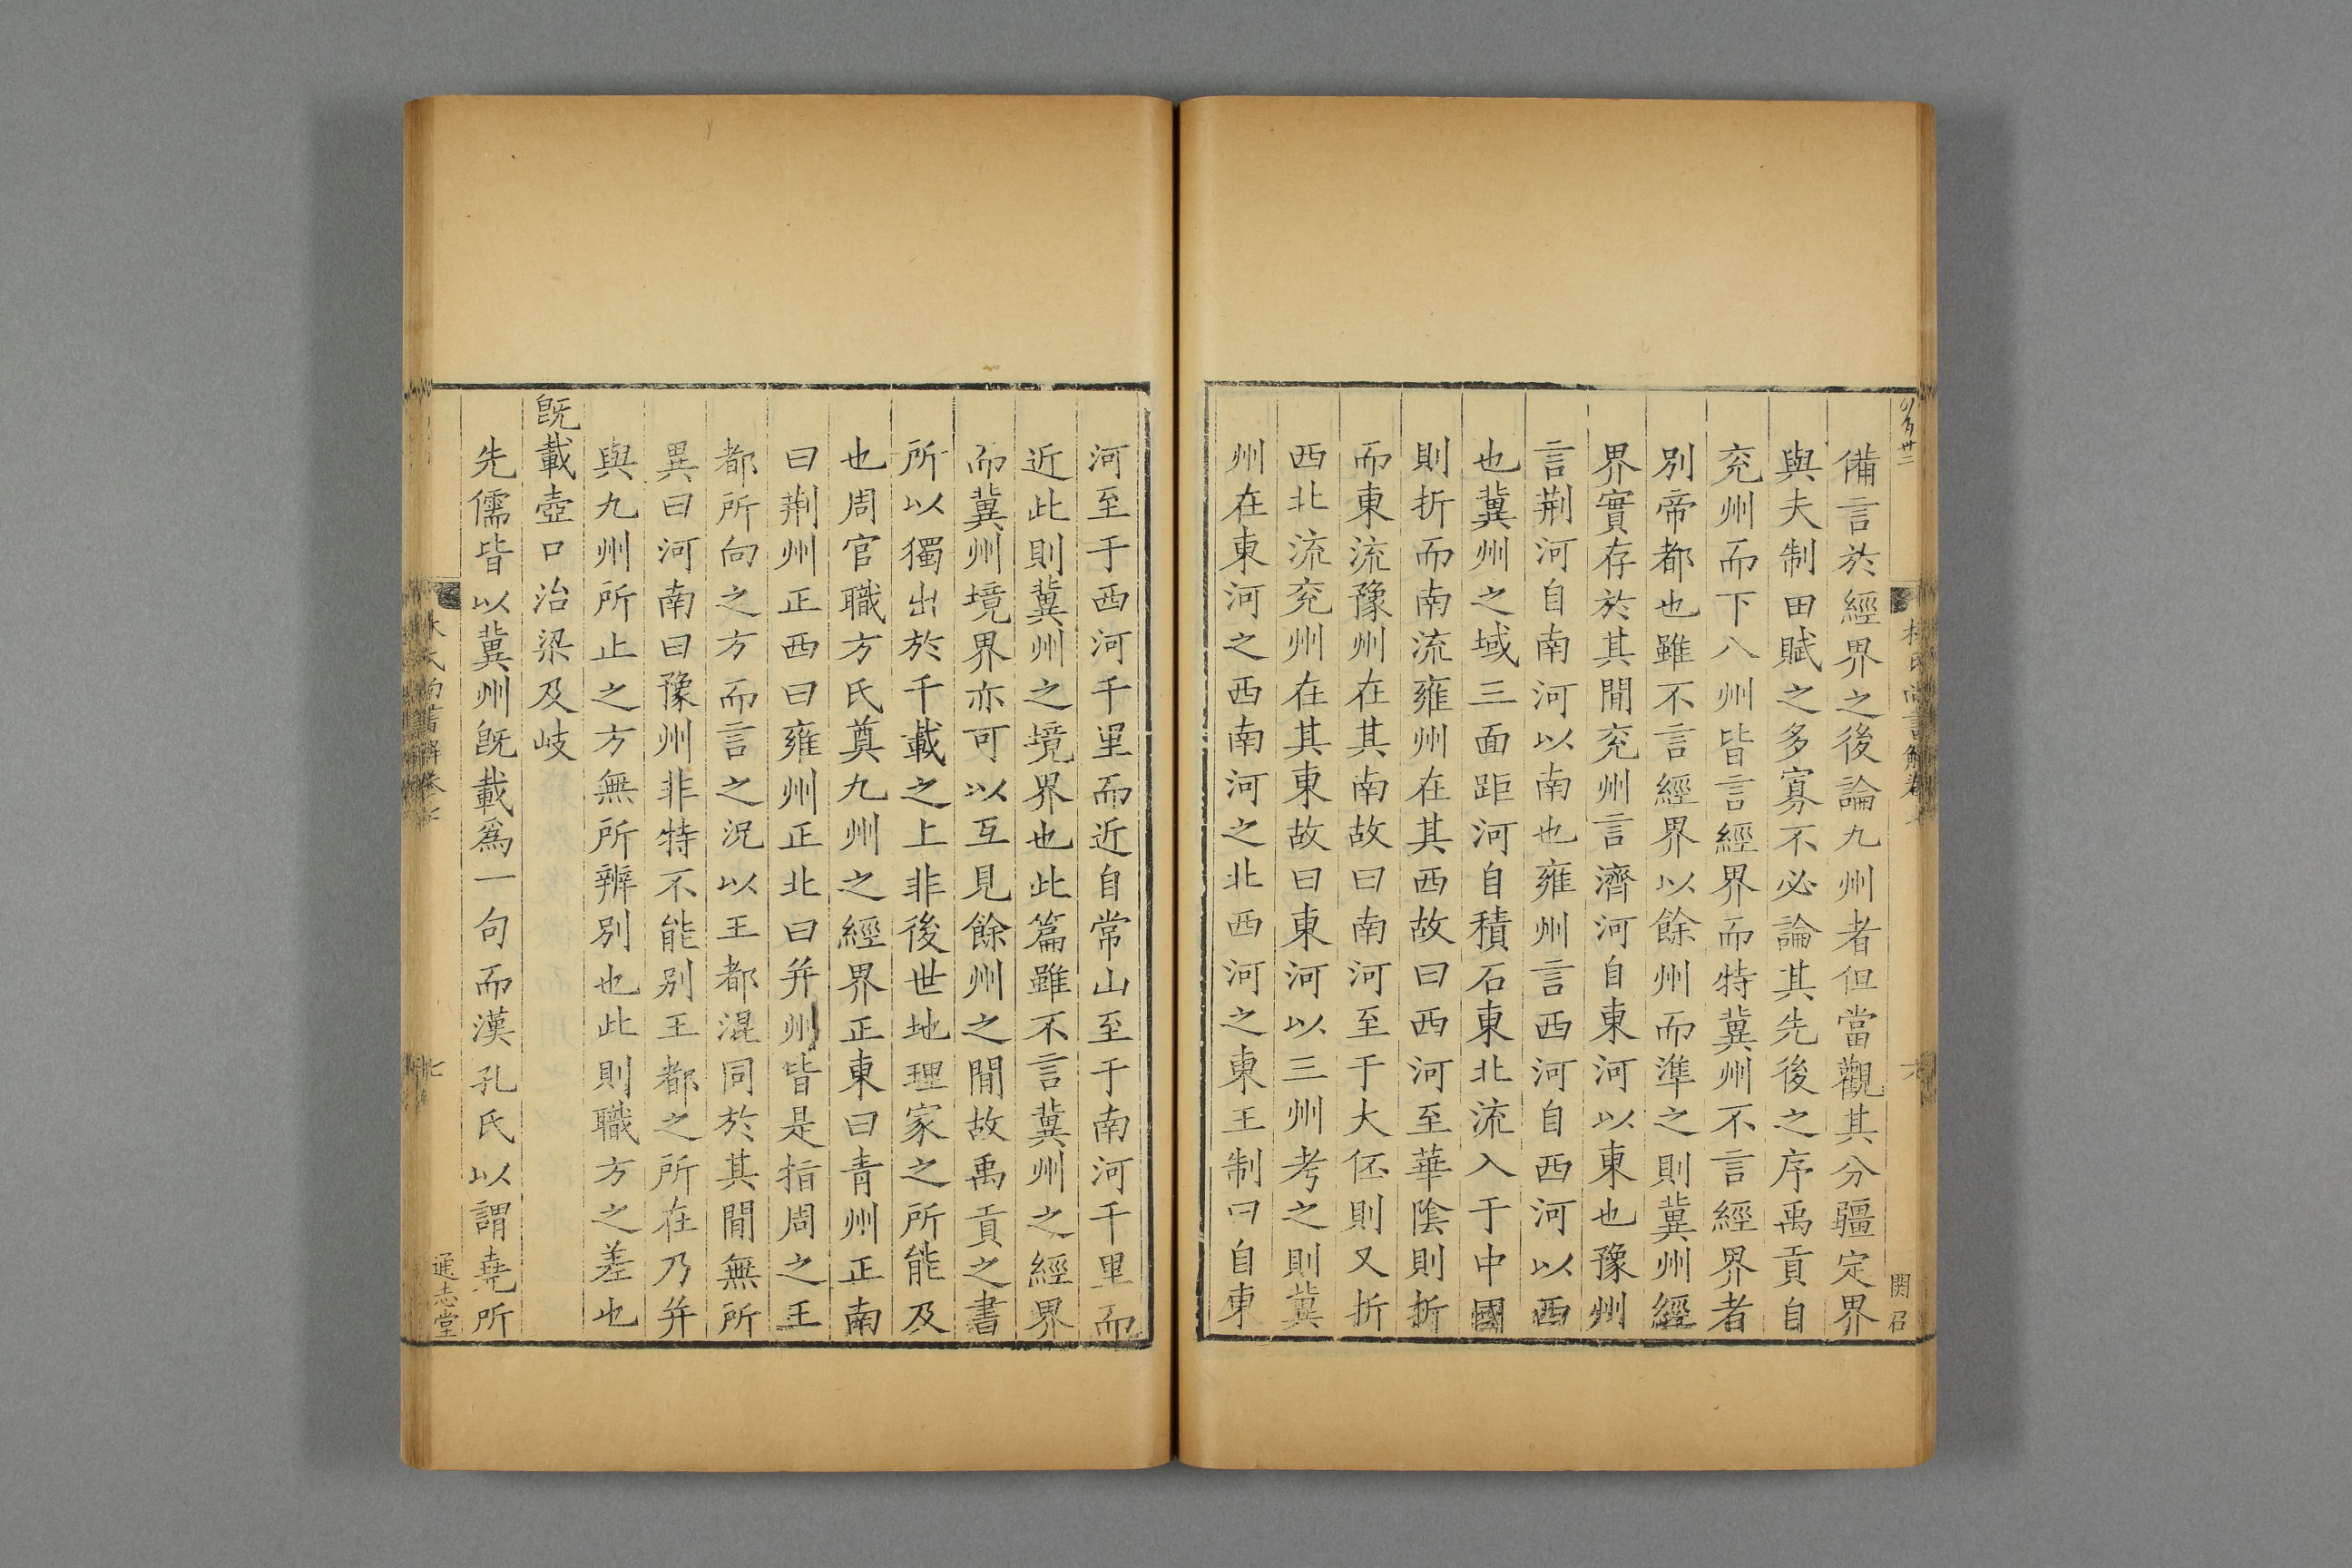 備言於經界之後論九州者但當觀其分疆定界
與夫制田賦之多寡不必論其先後之序禹貢自
兖州而下八州皆言經界而特冀州不言經界者
別帝都也雖不言經界以餘州而準之則冀州經
界實存於其閒兖州言濟河自東河以東也豫州
言荆河自南河以南也雍州言西河自西河以西
也冀州之域三面距河自積石東北流入于中國
則折而南流雍州在其西故曰西河至華陰則折
而東流豫州在其南故曰南河至于大伾則又折
西北流兖州在其東故曰東河以三州考之則冀
州在東河之西南河之北西河之東王制曰自東
河至于西河千里而近自常山至于南河千里而
近此則冀州之境界也此篇雖不言冀州之經界
而冀州境界亦可以互見餘州之閒故禹貢之書
所以獨出於千載之上非後世地理家之所能及
也周官職方氏奠九州之經界正東曰青州正南
曰荆州正西曰雍州正北曰并州皆是指周之王
都所向之方而言之況以王都混同於其閒無所
異曰河南曰豫州非特不能別王都之所在乃并
與九州所止之方無所辨別也此則職方之差也
旣載壺口治梁及岐
先儒皆以冀州旣載爲一句而漢孔氏以謂堯所
通志堂